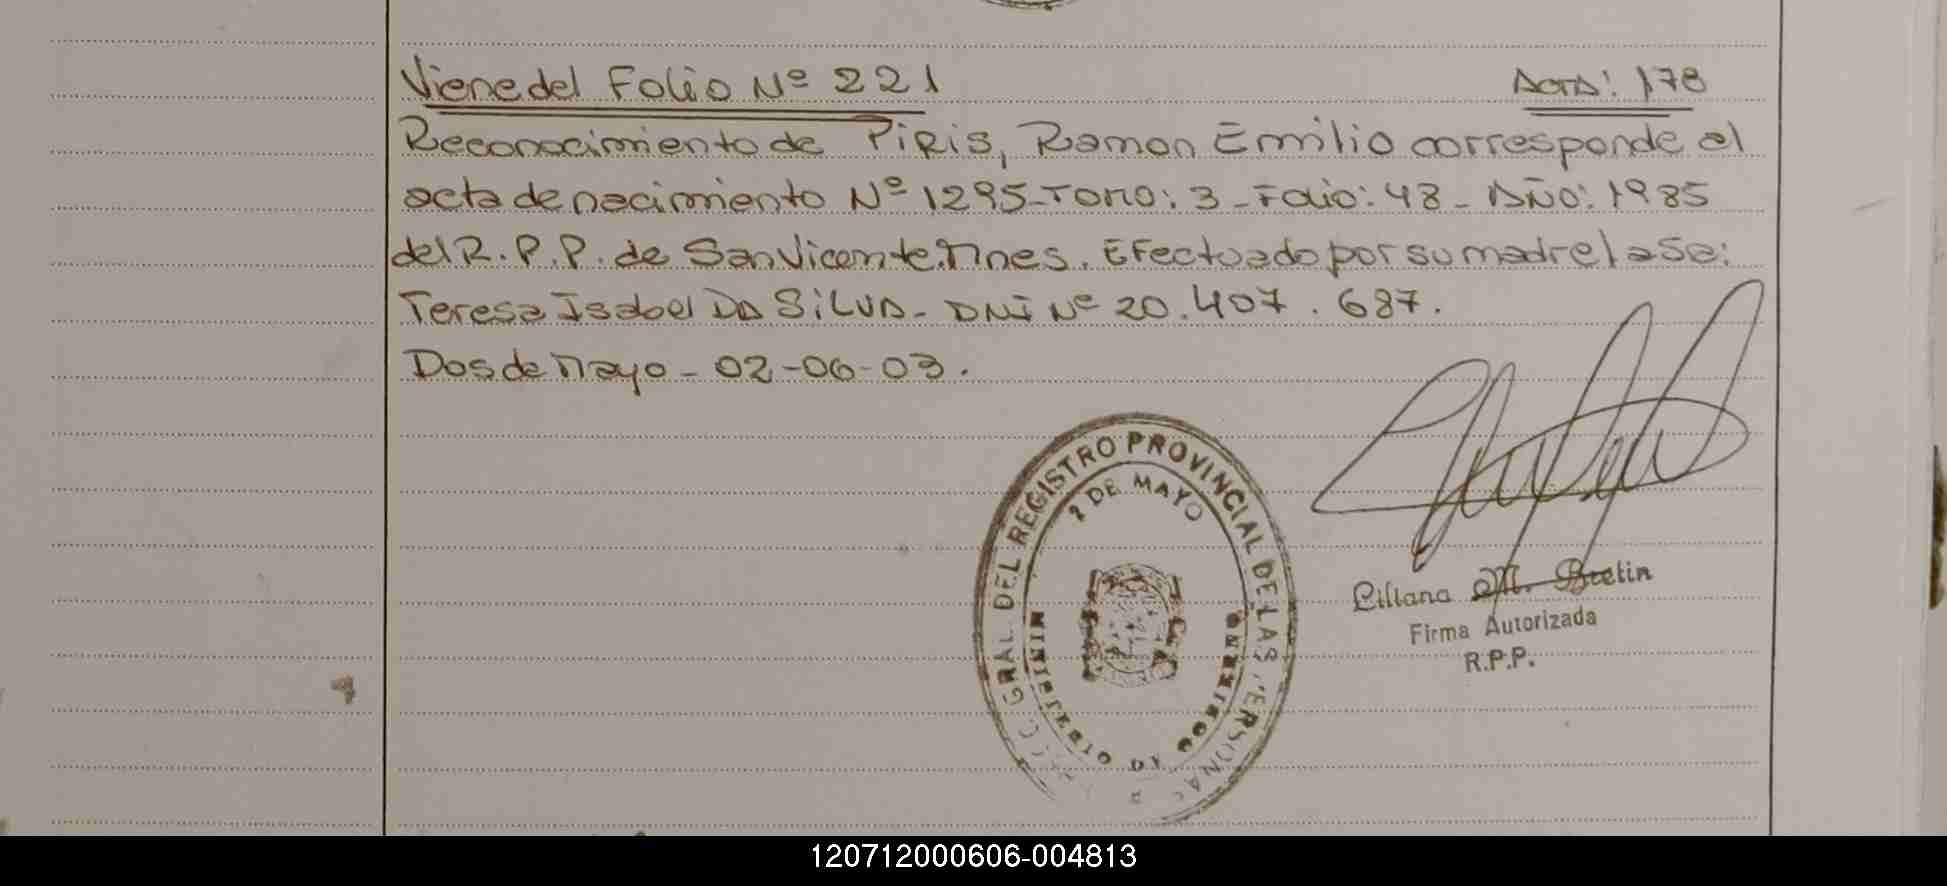 Viene del Folio Nº 221 Acta: 178
Reconocimiento de Piris, Ramon Emilio corresponde al
acta de nacimiento Nº 1295-Tomo: 3-Folio: 48-Año: 1985
del R.P.P. de San Vicente.Mnes. Efectuado por su madre la Sa:
Teresa Isabel Da Silva- DNI Nº 20.407.687.
Dos de Mayo-02-06-03.
GRAL. DEL REGISTRO PROVINCIAL DE LAS PERSONAS
2 DE MAYO
Liliana M. Bretin
Firma Autorizada
R.P.P.
120712000606-004813